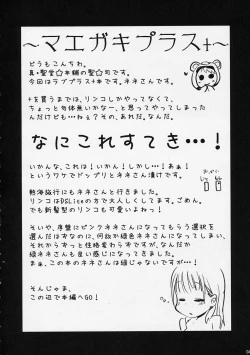 ～マエガキプラス+～
どうもこんちわ。
今回はラブプラス+本です。ネネさんです。
+を買うまでは、リンコしかやってなくて、
ちょっと勾体無いかなー、と思ってやってしまった
んだけども…ねぇ？その、あれだ。なんだ。
なにこれすてき…！
いかんな、これは！いかん！しかし…！あぁ！
というワケでドップリとネネさん漬けです。
熱海旅行にもネネさんと行きました。
リンコはDSLiteの方で大人しくしてます。ごめん。
でも新髪型のリンコも可愛いよね！
そいや、序盤にピンクネネさんになってもらう選択
を選んだはずなのに、何故か緑色ネネさんになってしまい、
それからずっと性格変わらずですが、なんだか
緑ネネさんも良い感じになってきました。
まぁ、この本のネネさんは緑じゃないですが…！
そんじゃま、
この辺で本編へGO！